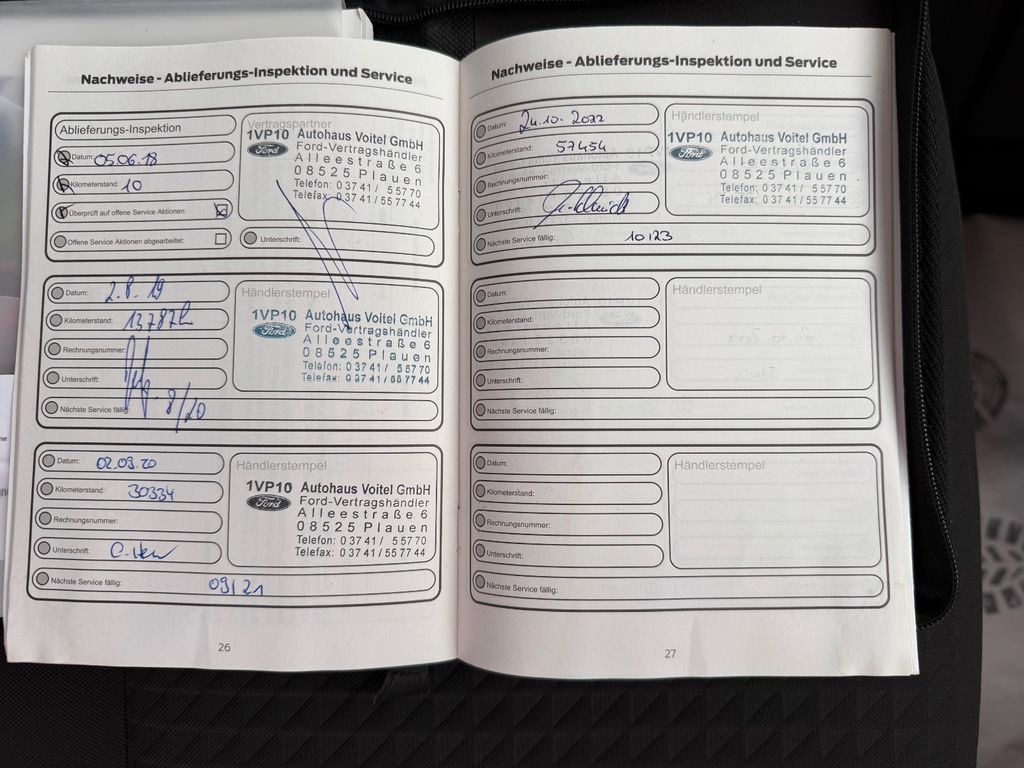 Nachweise - Ablieferungs-Inspektion und Service
Ablieferungs-Inspektion
Datum: 05.06.18
Kilometerstand: 10
Überprüft auf offene Service Aktionen:
Offene Service Aktionen abgearbeitet:
Vertragspartner
1VP10 Autohaus Voitel GmbH
Ford Ford-Vertragshändler
Alleestraße 6
08525 Plauen
Telefon: 03741/ 55770
Telefax: 03741/557744
Unterschrift:
Datum: 2.8.19
Kilometerstand: 13787
Rechnungsnummer:
Unterschrift:
Nächste Service fällig: 8/20
Händlerstempel
1VP10 Autohaus Voitel GmbH
Ford Ford-Vertragshändler
Alleestraße 6
08525 Plauen
Telefon: 03741/ 55770
Telefax: 03741/557744
Datum: 02.09.20
Kilometerstand: 30334
Rechnungsnummer:
Unterschrift:
Nächste Service fällig: 09/21
Händlerstempel
1VP10 Autohaus Voitel GmbH
Ford Ford-Vertragshändler
Alleestraße 6
08525 Plauen
Telefon: 03741/ 55770
Telefax: 03741/557744
26
Nachweise - Ablieferungs-Inspektion und Service
Datum: 24.10.2022
Kilometerstand: 57454
Rechnungsnummer:
Unterschrift:
Nächste Service fällig: 10/23
Händlerstempel
1VP10 Autohaus Voitel GmbH
Ford Ford-Vertragshändler
Alleestraße 6
08525 Plauen
Telefon: 03741/ 55770
Telefax: 03741/557744
Datum:
Kilometerstand:
Rechnungsnummer:
Unterschrift:
Nächste Service fällig:
Händlerstempel
Datum:
Kilometerstand:
Rechnungsnummer:
Unterschrift:
Nächste Service fällig:
Händlerstempel
27